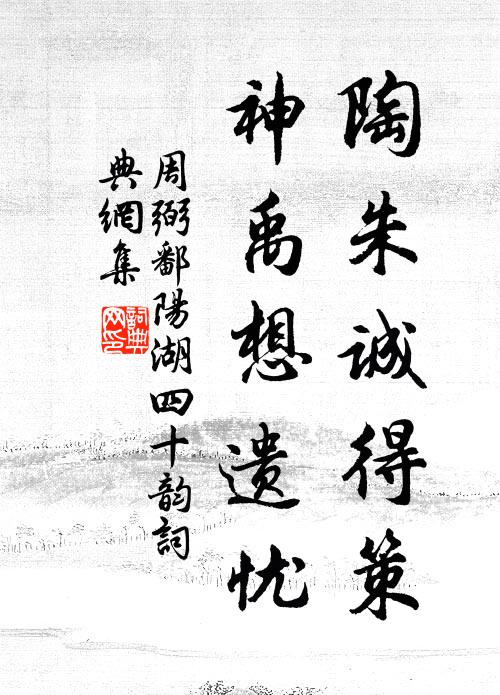 陶朱诚得策
神禹想遗忧
周弼鄱陽湖四十韵詞
典網集
詞典网印